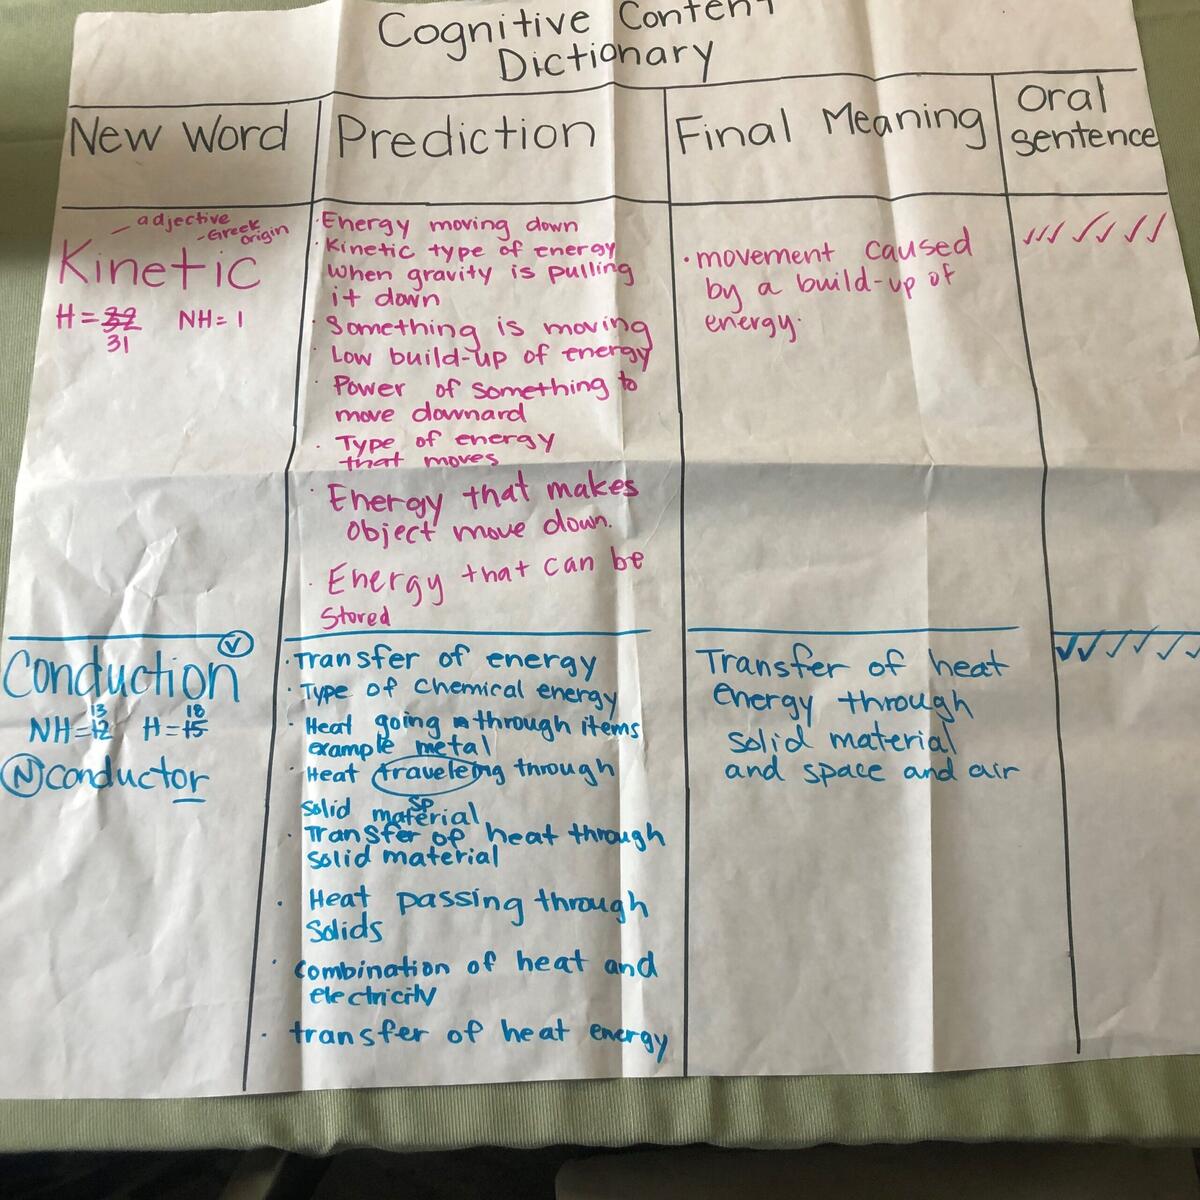 Cognitive Content
Dictionary
New Word
Prediction
Final Meaning
Oral
Sentence
- adjective
- Greek
origin
Kinetic
H = 32 NH = 1
31
· Energy moving down
· Kinetic type of energy
when gravity is pulling
it down
· Something is moving
· Low build-up of energy
· Power of something to
move downard
· Type of energy
that moves
· Energy that makes
object move down.
· Energy that can be
stored
· movement caused
by a build-up of
energy.
V
Conduction
13 18
NH = 12 H = 15
N conductor
· Transfer of energy
· Type of chemical energy
· Heat going through items
example metal
· Heat traveleing through
sp
solid material
· Transfer of heat through
solid material
· Heat passing through
solids
· combination of heat and
electricity
· transfer of heat energy
Transfer of heat
energy through
solid material
and space and air